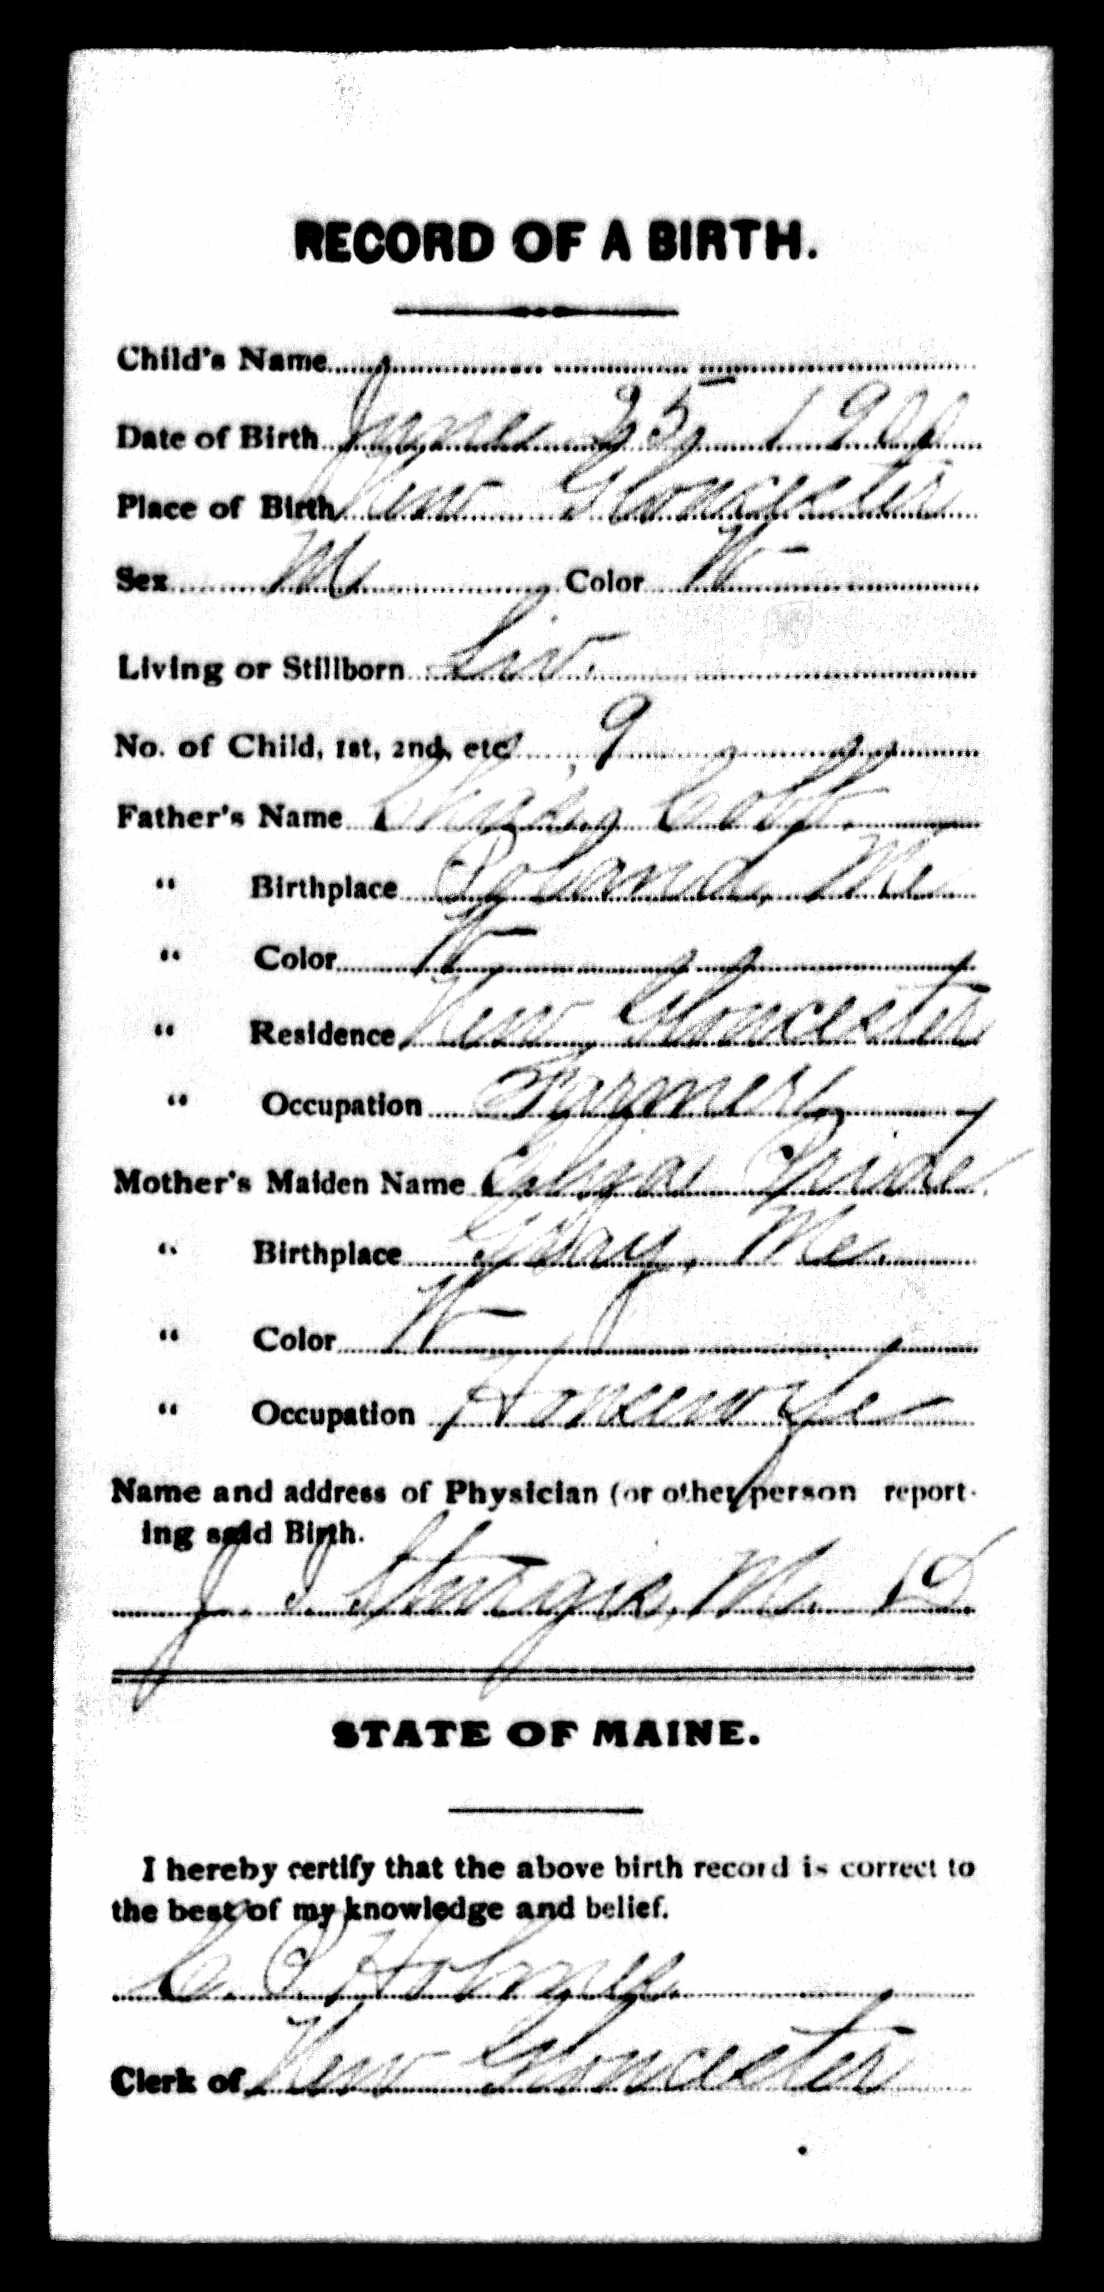 RECORD OF A BIRTH.
Child's Name
Date of Birth June 25, 1900
Place of Birth New Gloucester
Sex M Color W
Living or Stillborn Liv.
No. of Child, 1st, 2nd, etc. 9
Father's Name Cobb
" Birthplace Poland, Me
" Color W
" Residence New Gloucester
" Occupation Farmer
Mother's Maiden Name Eliza Pride
" Birthplace Gray, Me.
" Color W
" Occupation Housewife
Name and address of Physician (or other person report-
ing said Birth.
J. I. Sturgis, M. D.
STATE OF MAINE.
I hereby certify that the above birth record is correct to
the best of my knowledge and belief.
C. P. Holmes
Clerk of New Gloucester